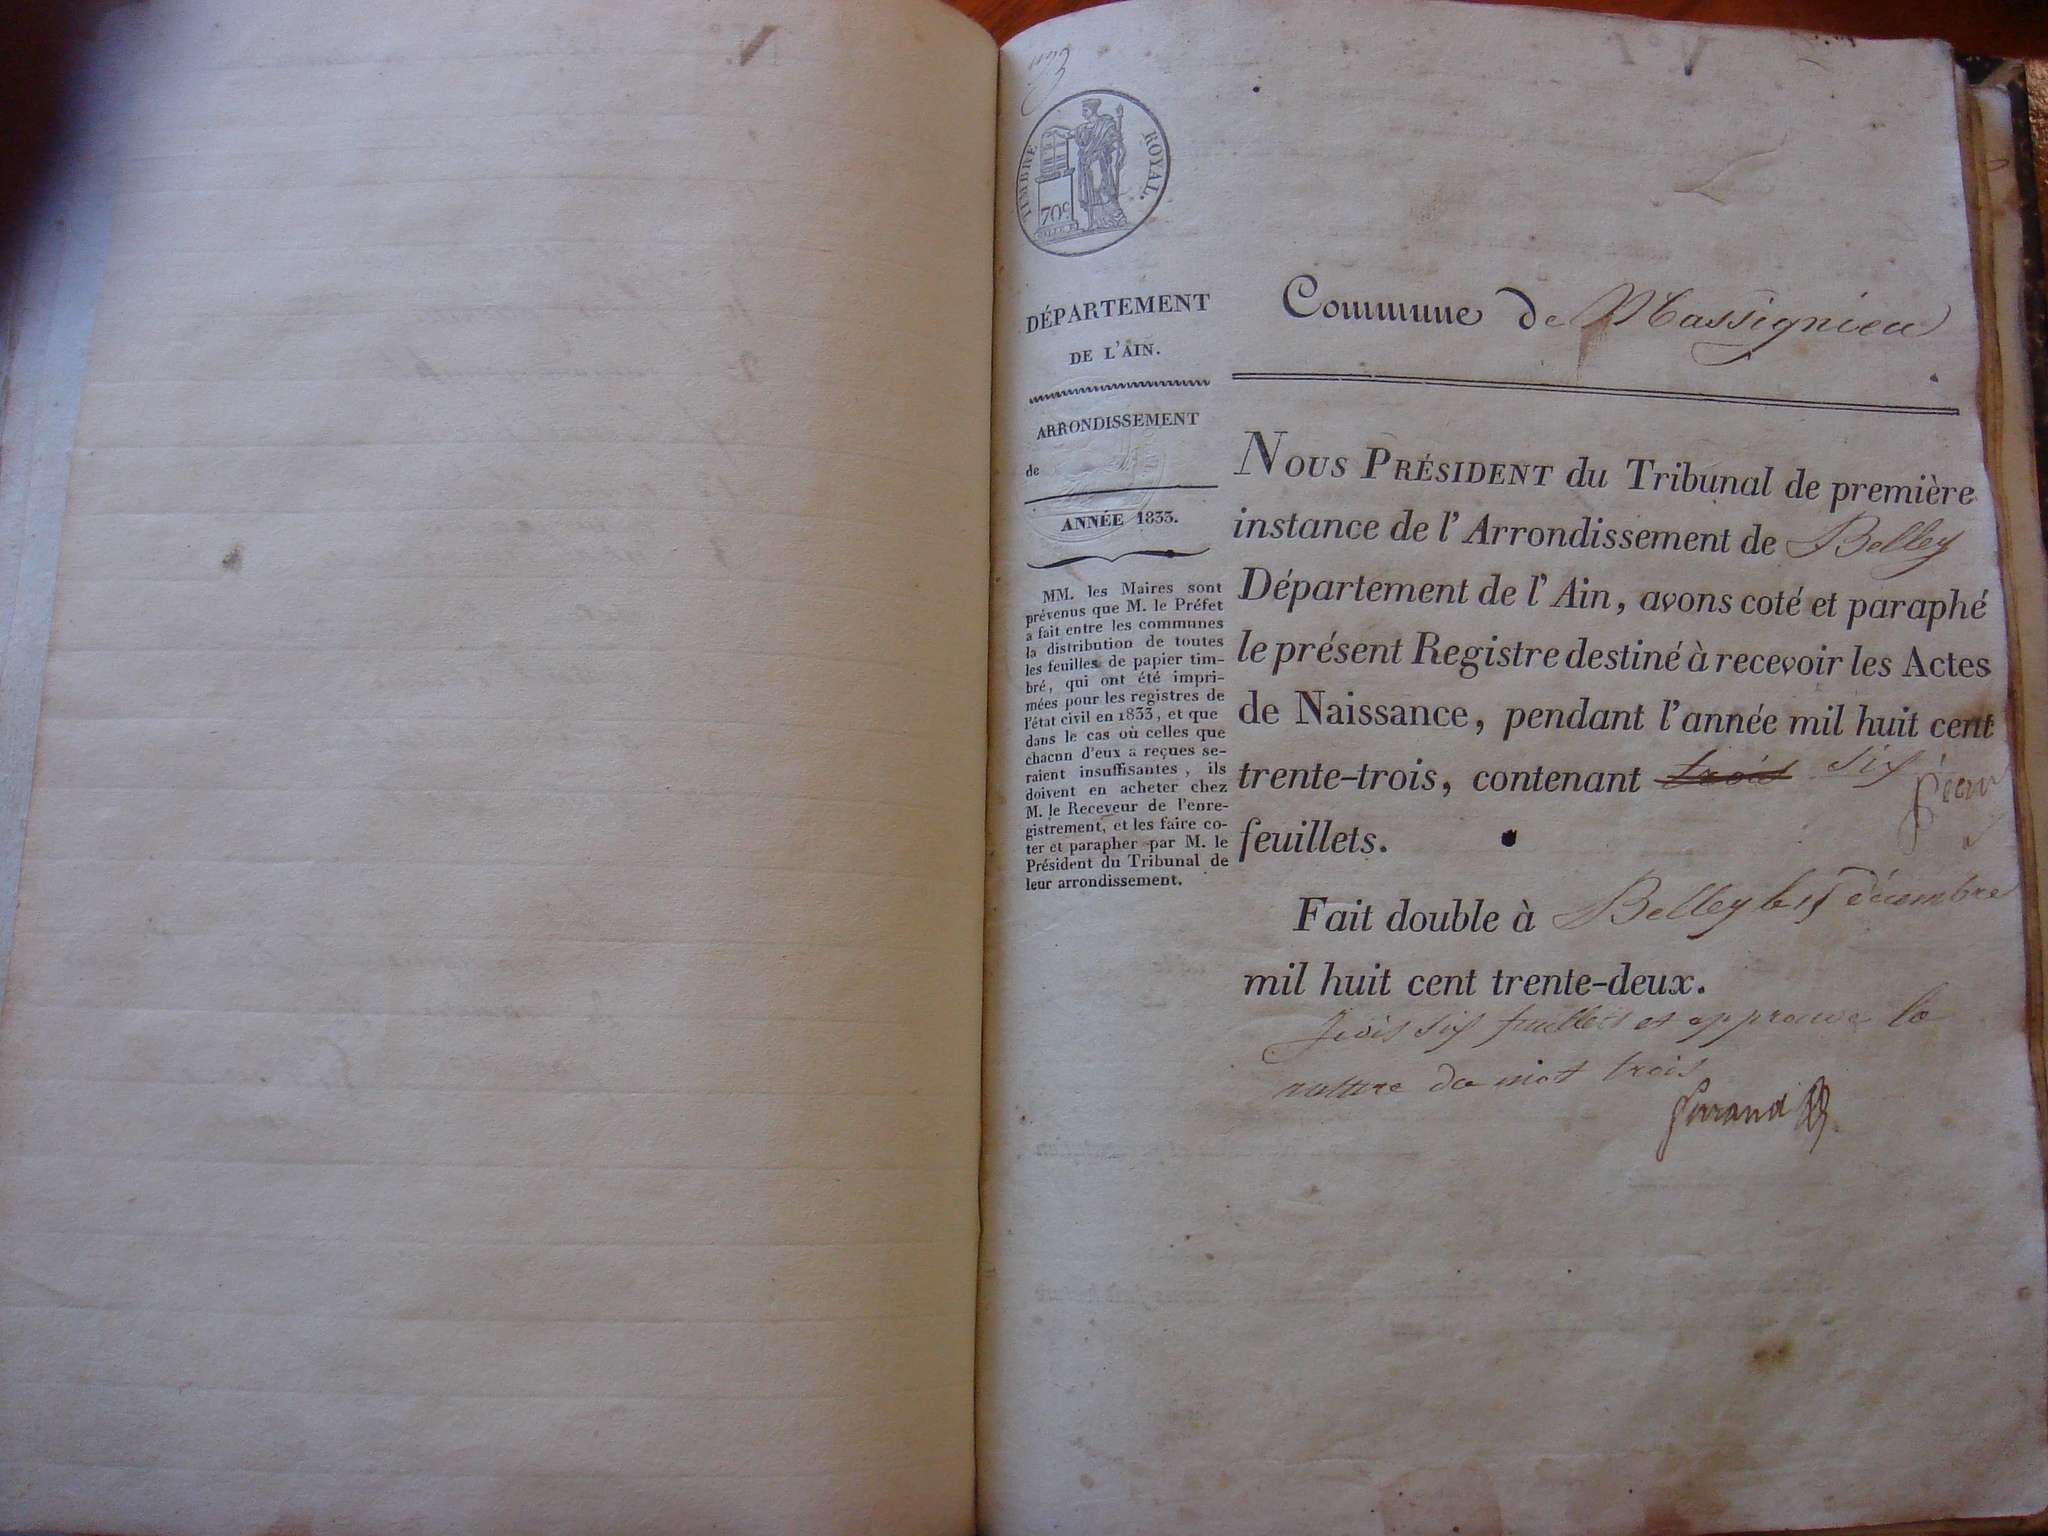 TIMBRE ROYAL.
70c
DÉPARTEMENT
DE L'AIN.
ARRONDISSEMENT
de
ANNÉE 1833.
MM. les Maires sont
prévenus que M. le Préfet
a fait entre les communes
la distribution de toutes
les feuilles de papier tim-
bré, qui ont été impri-
mées pour les registres de
l'état civil en 1833, et que
dans le cas où celles que
chacun d'eux a reçues se-
raient insuffisantes, ils
doivent en acheter chez
M. le Receveur de l'enre-
gistrement, et les faire co-
ter et parapher par M. le
Président du Tribunal de
leur arrondissement.
Commune de Massignieu
NOUS PRÉSIDENT du Tribunal de première
instance de l'Arrondissement de Belley
Département de l'Ain, avons coté et paraphé
le présent Registre destiné à recevoir les Actes
de Naissance, pendant l'année mil huit cent
trente-trois, contenant trois six
feuillets.
Fait double à Belley le 15 décembre
mil huit cent trente-deux.
six feuillets et approuvé la
rature du mot trois